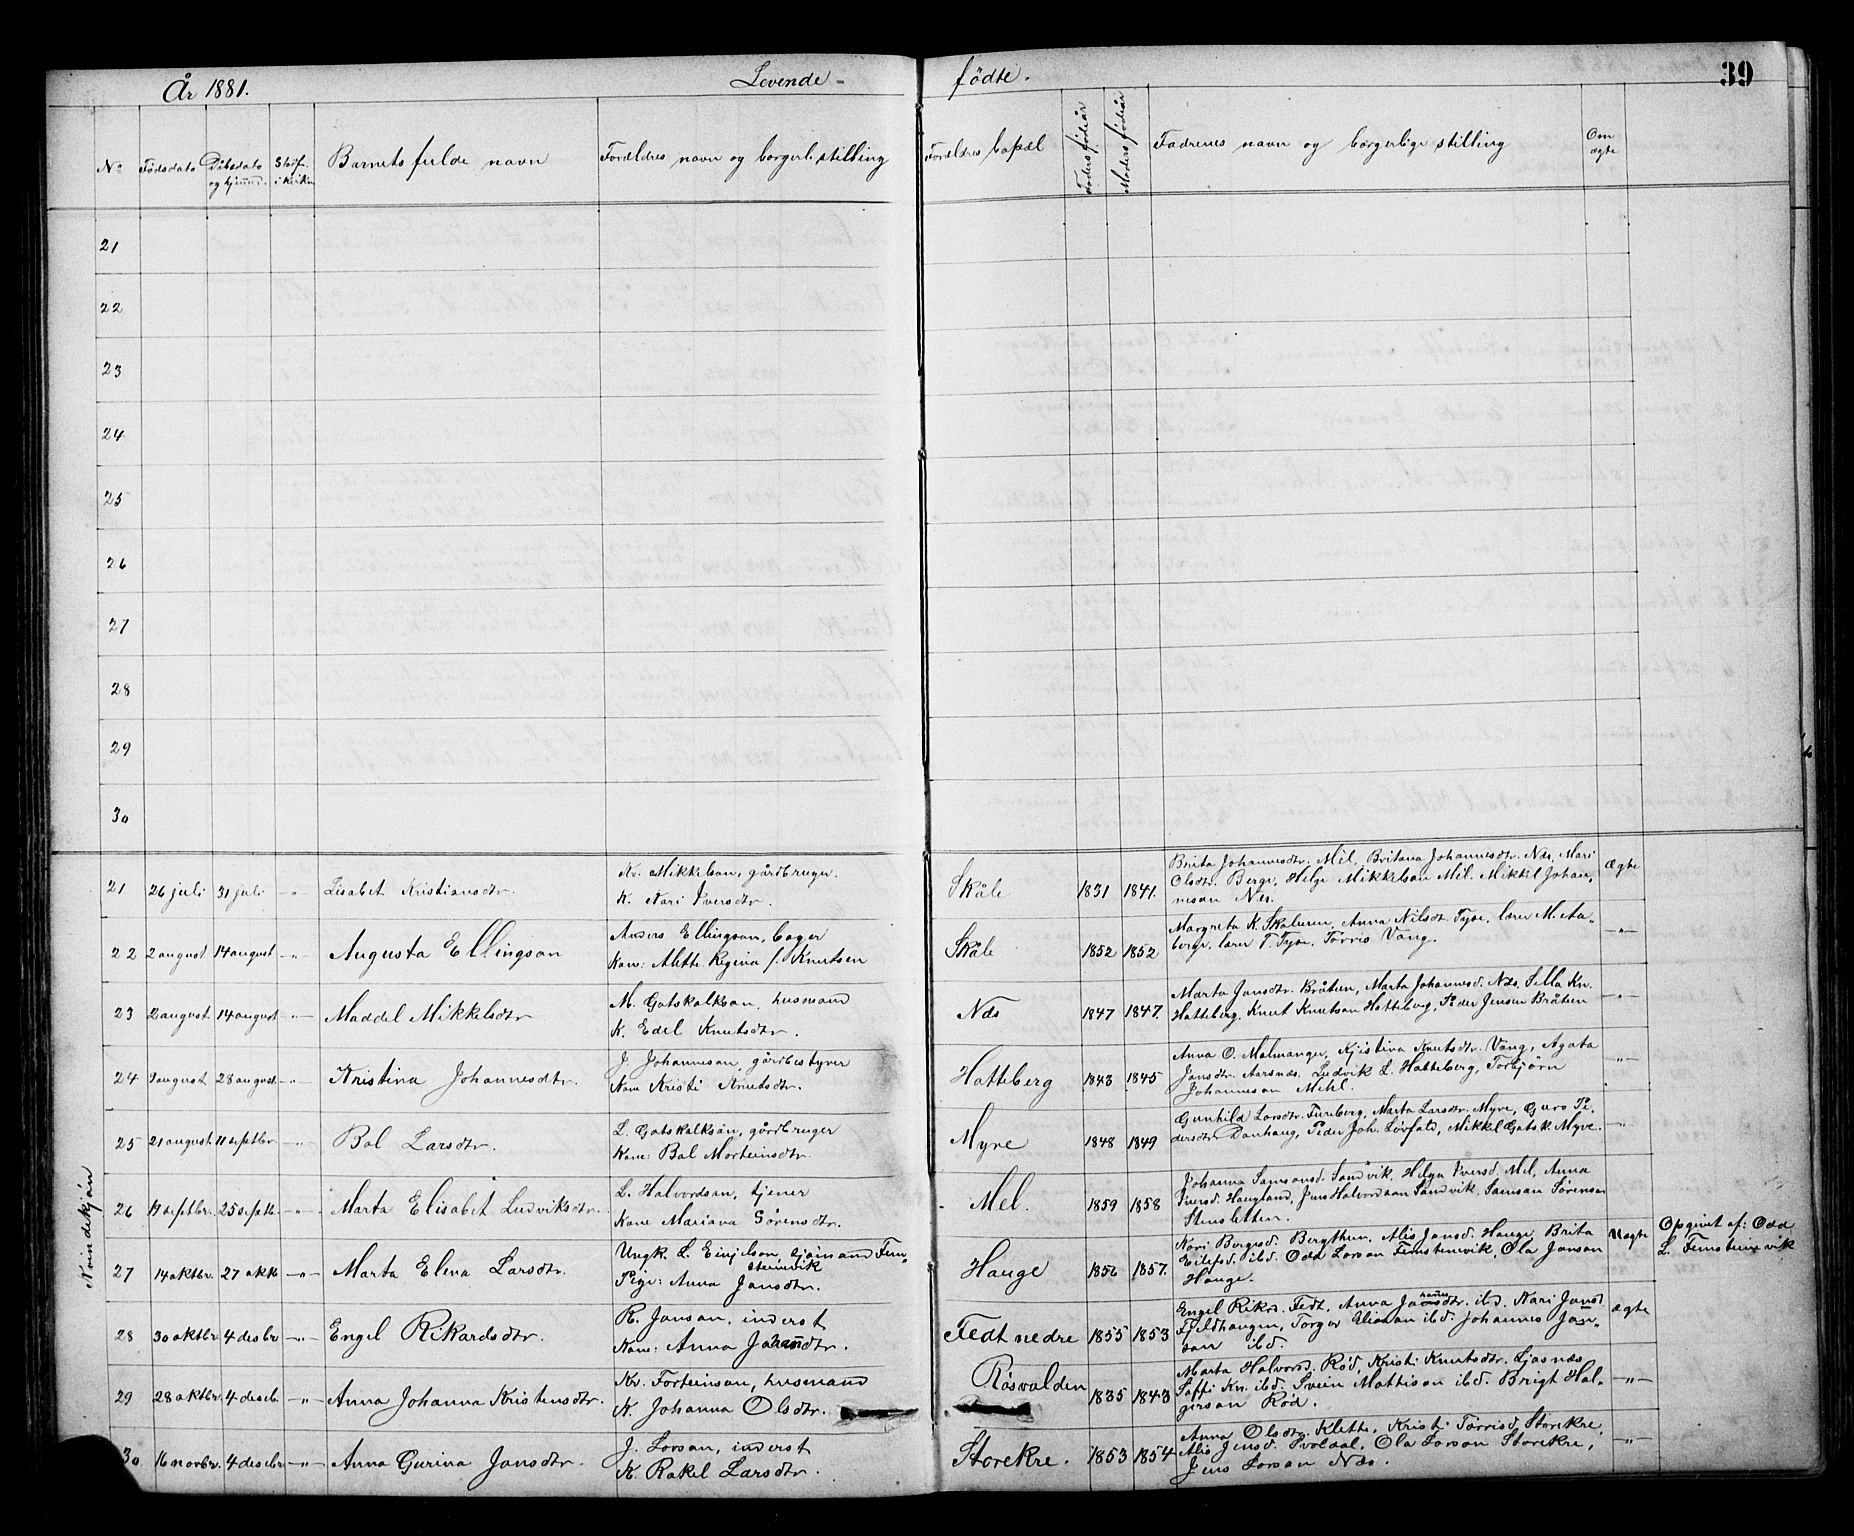 År 1881. Levende- födte. 39
No Födsdato Döbsdato og hjemd. Stadf. i kirken Barnets fulde navn Forældres navn og borgerl. stilling Forældres bopæl Faders födeår Moders födeår Fadrenes navn og borgerlige stilling Om ægte
21
22
23
24
25
26
27
28
29
30
Kvindekjön
21 26 juli 31 juli -"- Lisabet Kristiansdtr. Kr. Mikkelson, gårdbruger K. Kari Iversdtr. Skåle 1831 1841. Brita Johannesdtr. Mel, Britana Johannesdtr. Næs, Mari
Olsdtr. Berge, Helge Mikkelson Mel. Mikkel Johan,
neson Næs. Ægte
22 2 august 14 august -"- Augusta Ellingson Anders Ellingson, bager Kone: Alette Regina f. Knutsen Skåle 1852 1852 Margreta K. Skåluren, Anna Nilsdtr Tyse, lærer M. Aa-
berge, lærer T. Tyse, Torris Vang. -"-
23 2 august 14 august -"- Maddel Mikkelsdtr M. Gotskalkson, husmand K. Edel Knutsdtr. Næs 1847 1847. Marta Jonsdtr. Bråteen, Marta Johannesd. Næs, Sella Kn.
Hatteberg, Knut Knutson Hatteberg, Peder Jensen Bråteen -"-
24 9 august 28 august -"- Kristina Johannesdtr. J. Johanneson, gårdbestyrer Kone Kristi Knutsdtr. Hatteberg 1843 1845 Anna O. Malmanger, Kjistina Knutsdtr. Vang, Agata
Jonsdtr. Aarsnæs, Ludvik L. Hatteberg, Torbjörn
Johanneson Mehl. -"-
25 21 august 11 septbr. -"- Bol Larsdtr. L. Gotskalkson, gårdbruger Kone: Bol Morteinsdtr. Myre 1848 1849 Gunhild Larsdtr. Fureberg, Marta Larsdtr. Myre, Guro Pe,
dersdtr Danhaug, Peder Joh. Løvfald, Mikkel Gotsk. Myre. -"-
26 19 septbr. 25 septb. -"- Marta Elisabet Ludviksdtr. L. Halvordson, tjener Kone Mariana Sörensdtr. Mel. 1859 1858 Johanna Samsonsd. Sandvik, Helga Iversd. Mel, Anna
Iversd. Haugland, Jens Halvordson Sandvik, Samson Sörenson
Stensletten. -"-
27 14 oktbr. 27 okt. -"- Marta Elena Larsdtr. Ungk. L. Einjelson, sjömand Fem-
steinevik
Pige: Anna Jonsdtr. Hauge 1856 1857. Kari Borgesd. Bergthun, Alis Jonsd. Hauge, Brita
Eilefsd. ibd. Odd Larson Femsteinevik, Ola Jonson
Hauge. Uægte Opgivet af: Odd
L. Femsteinevik
28 30 oktbr 4 desbr -"- Engel Rikardsdtr. R. Jonson, inderst Kone: Anna Johansdtr. Fedt nedre 1855 1853 Engel Rikrs. Fedt, Anna Johannsdtr. ibd. Kari Jonsd.
Fjeldhaugen, Torger Eliasson ibd. Johannes Jon-
son ibd. Ægte
29 28 oktbr. 4 deseb. -"- Anna Johanna Kristensdtr. Kr. Torteinson, husmand K. Johanna Olsdtr. Røsvalden 1835 1843 Marta Halvorsd. Rød, Kristi Knutsdtr. Ljosnæs
Soffi Kn. ibd. Svein Mattison ibd. Brigt Hal-
gerson Rød. -"-
30 16 novbr. 4 desebr -"- Anna Gurina Jonsdtr. J. Larson, inderst K. Rakel Larsdtr. Storekre. 1853 1854 Anna Olsdtr. Klette, Kristi Torrisd. Storekre,
Alis Jensd. Svoldal, Ola Larson Storekre,
Jens Larson Næs. -"-